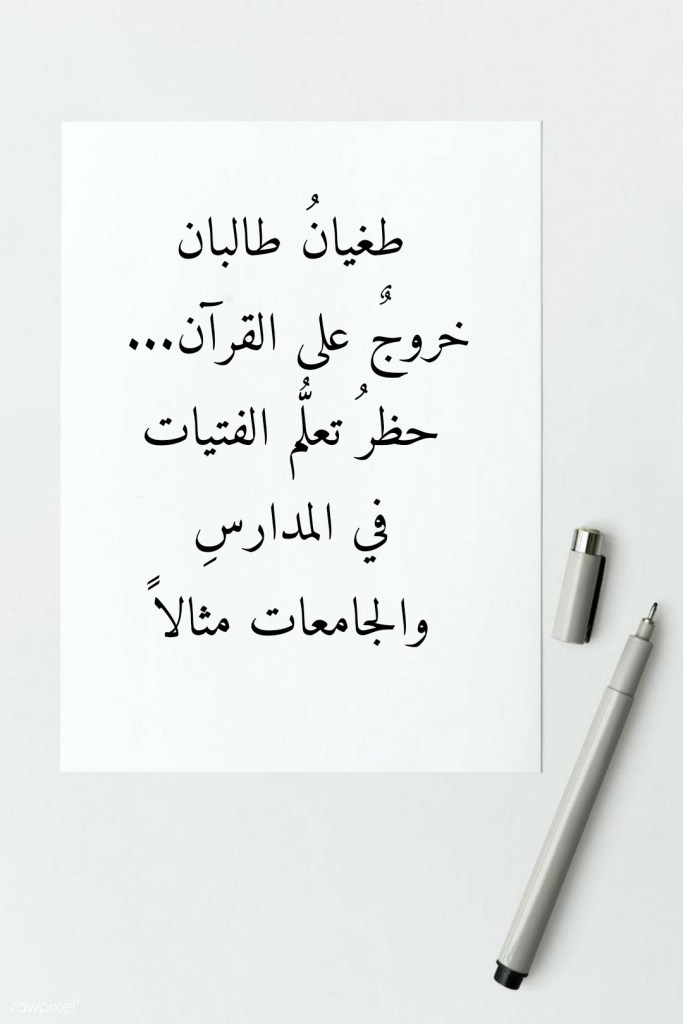 طغيانُ طالبان
خروجٌ على القرآن...
حظرُ تعلُّم الفتيات
في المدارسِ
والجامعات مثالاً
rawpixel